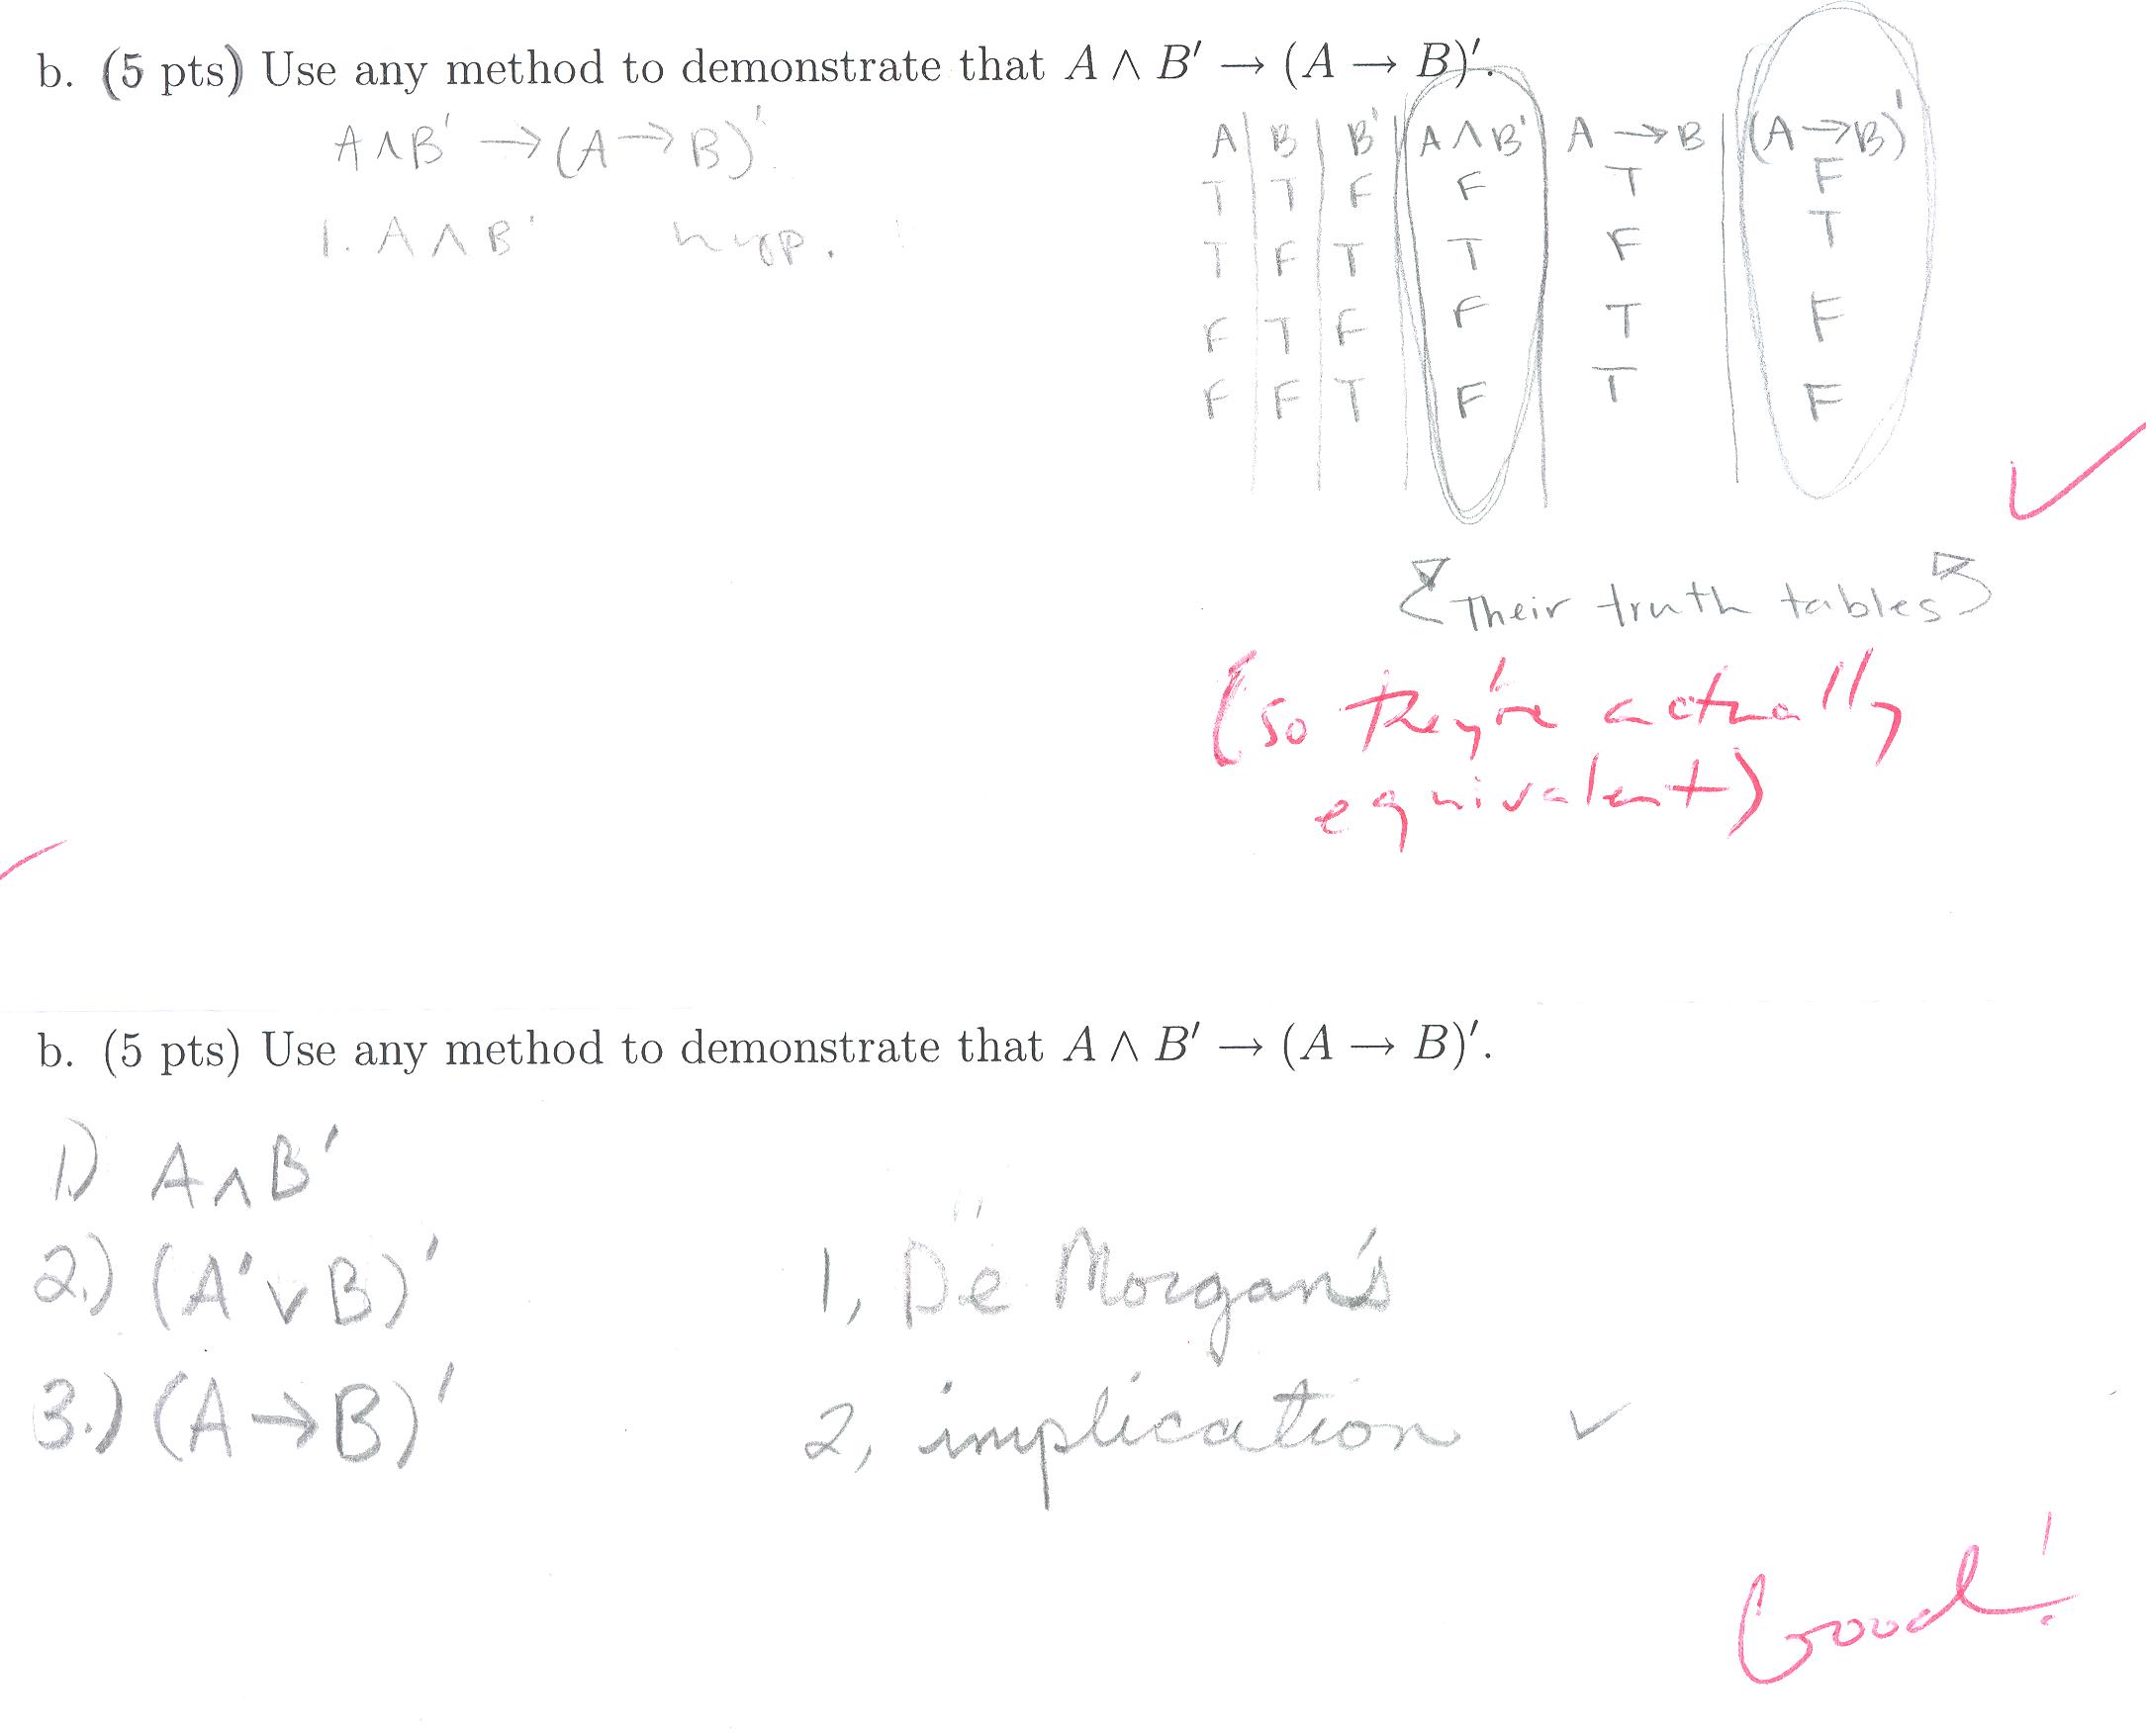 b. (5 pts) Use any method to demonstrate that A ∧ B′ → (A → B)′.
A∧B' → (A → B)'
1. A ∧ B' hyp.
A | B | B' | A ∧ B' | A → B | (A → B)'
T T F F T F
T F T T F T
F T F F T F
F F T F T F
Their truth tables
(so they're actually
equivalent)
b. (5 pts) Use any method to demonstrate that A ∧ B′ → (A → B)′.
1) A ∧ B'
2.) (A' ∨ B)' 1, De Morgan's
3.) (A → B)' 2, implication ✓
Good!